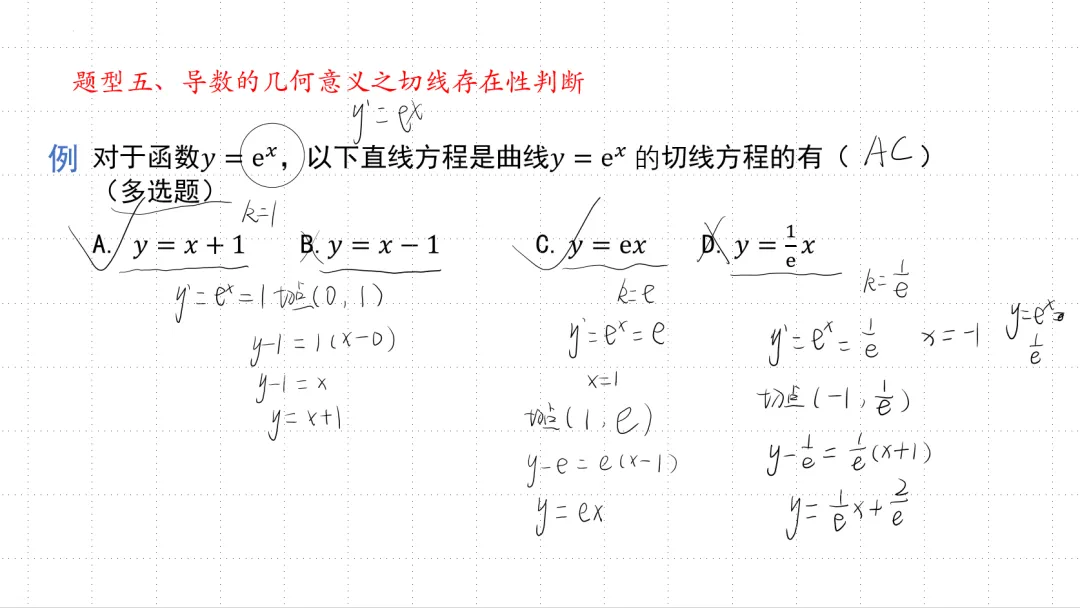 题型五、导数的几何意义之切线存在性判断
y' = eˣ
例 对于函数y = eˣ，以下直线方程是曲线y = eˣ 的切线方程的有（ AC ）
（多选题）
k=1
A. y = x + 1 B. y = x − 1 C. y = ex D. y = 1/e x
y' = eˣ = 1 切点(0, 1)
y-1 = 1(x-0)
y-1 = x
y = x+1
k=e
y' = eˣ = e
x=1
切点(1, e)
y-e = e(x-1)
y = ex
k = 1/e
y' = eˣ = 1/e x = -1 y=eˣ= 1/e
切点(-1, 1/e)
y - 1/e = 1/e (x+1)
y = 1/e x + 2/e